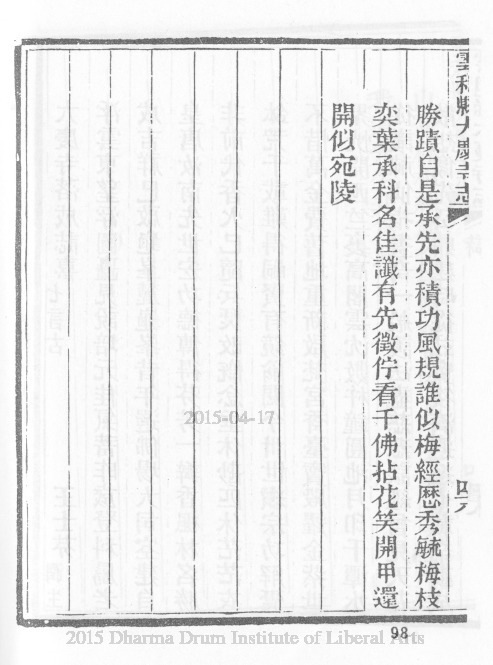 雲和縣大慶寺志
勝蹟自是承先亦積功風規誰似梅經歷秀毓梅枝
奕葉承科名佳讖有先徵佇看千佛拈花笑開甲還
開似宛陵
四九
98
2015-04-17
2015 Dharma Drum Institute of Liberal Arts